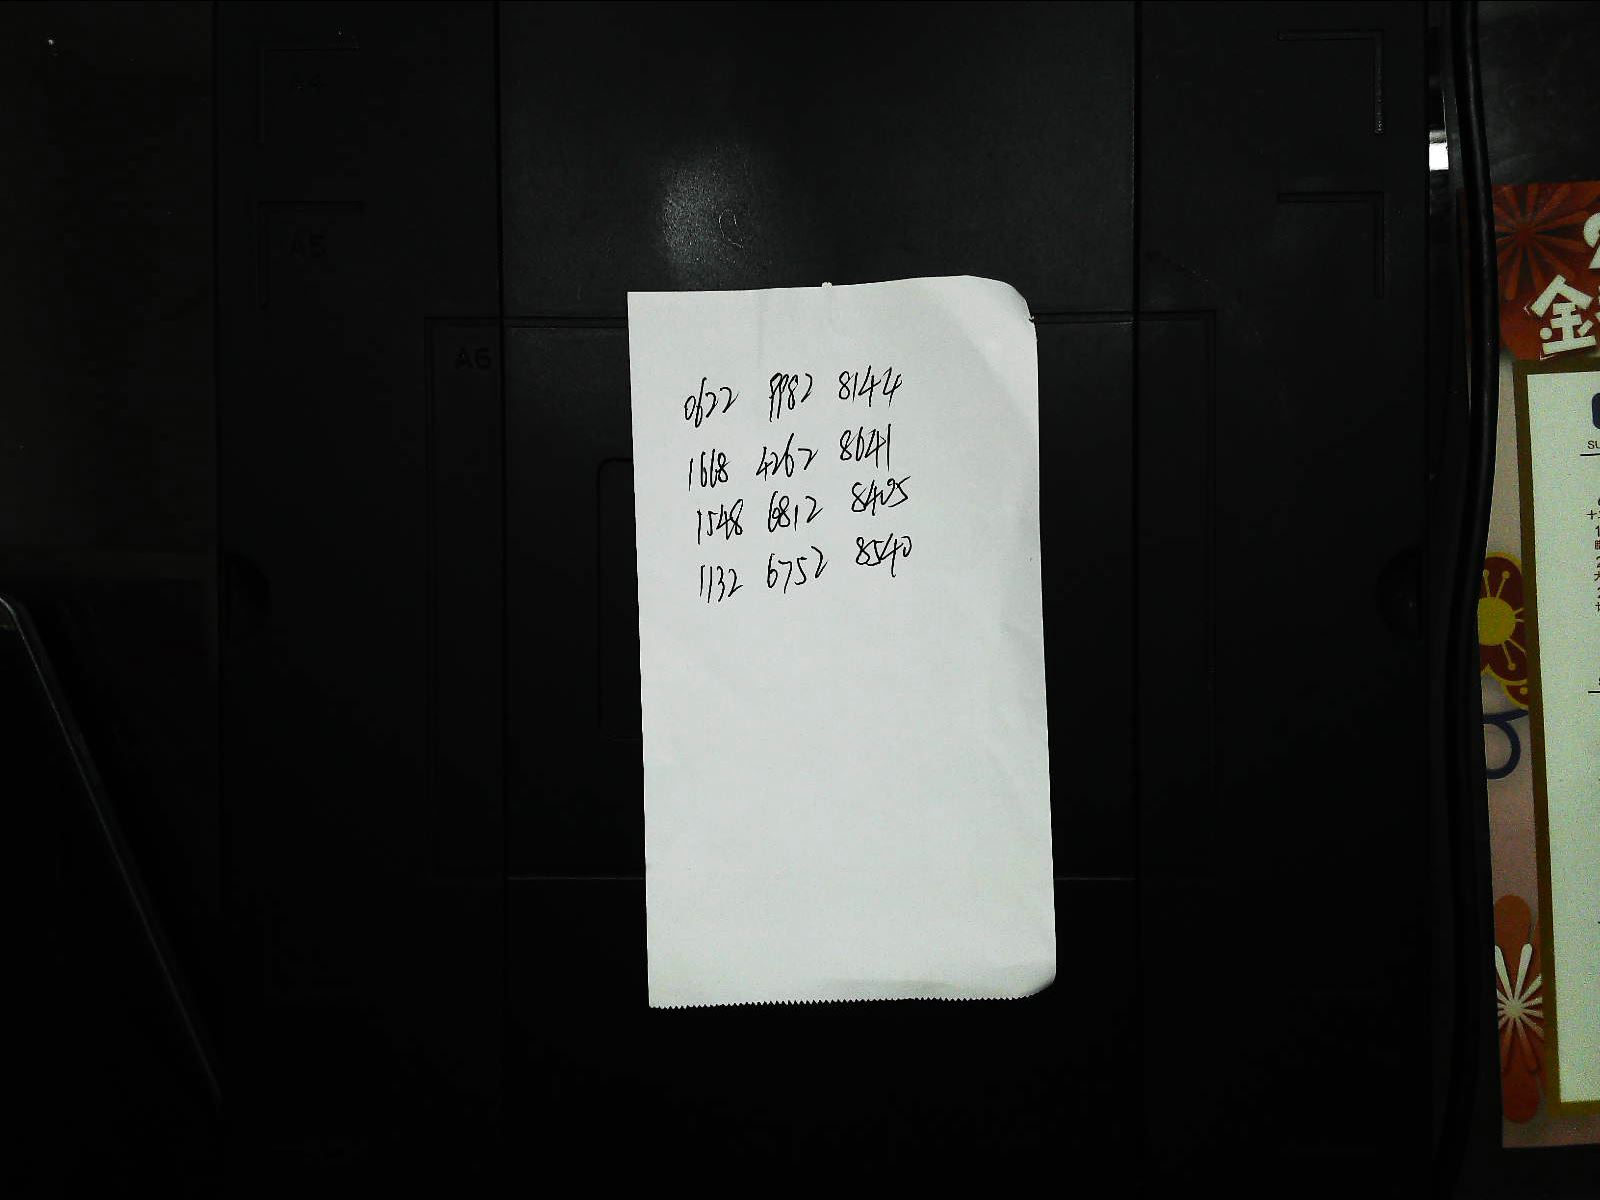 A4
A5
A6
0622 9982 8144
1668 4262 8641
1548 6812 8405
1132 6752 8540
金
SU